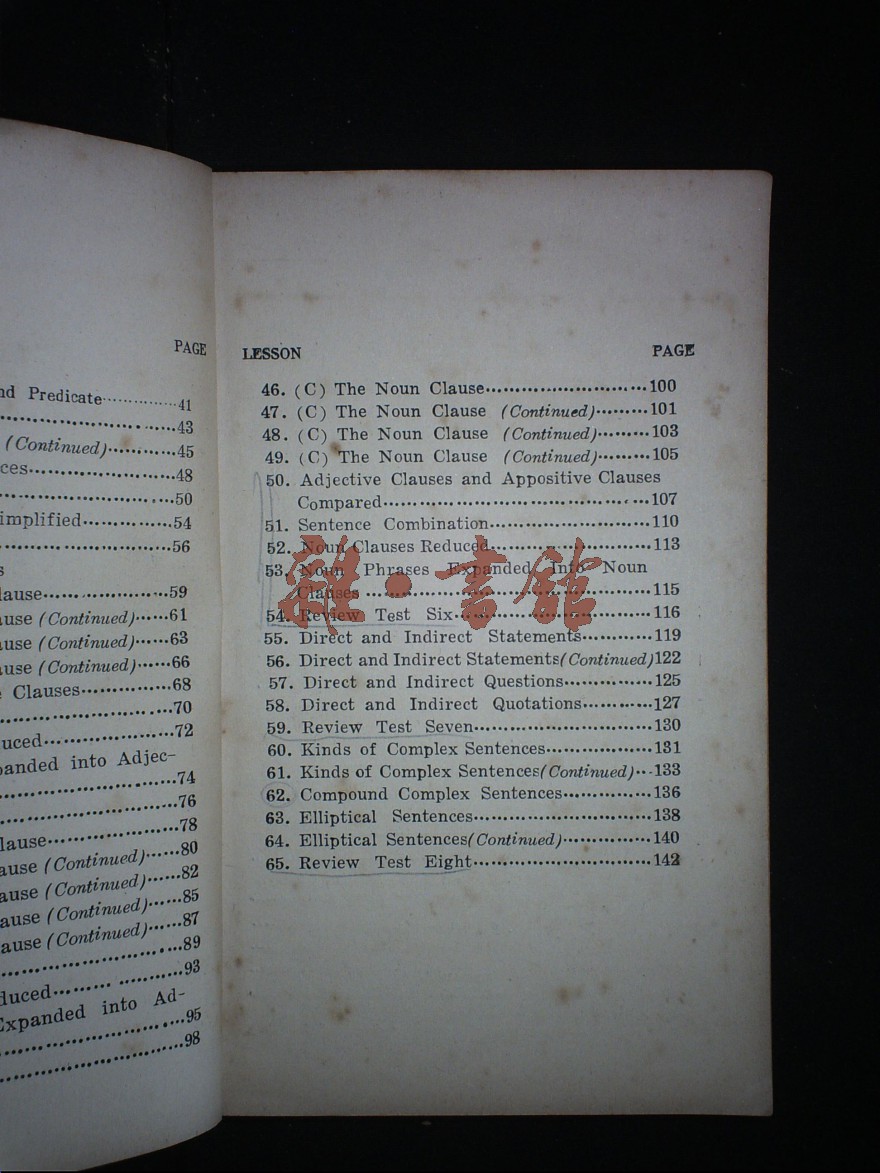 PAGE
nd Predicate...............41
...............43
(Continued)...............45
ces...............48
...............50
implified...............54
...............56
s
lause...............59
ause (Continued)......61
ause (Continued)......63
ause (Continued)......66
Clauses...............68
...............70
uced...............72
panded into Adjec-
...............74
...............76
...............78
lause...............
ause (Continued)......80
ause (Continued)......82
ause (Continued)......85
lause (Continued)......87
...............89
duced...............93
Expanded into Ad-
...............95
...............98
LESSON PAGE
46. (C) The Noun Clause...............100
47. (C) The Noun Clause (Continued).........101
48. (C) The Noun Clause (Continued).........103
49. (C) The Noun Clause (Continued).........105
50. Adjective Clauses and Appositive Clauses
Compared...............107
51. Sentence Combination...............110
52. Noun Clauses Reduced...............113
53. Noun Phrases Expanded Into Noun
Clauses...............115
54. Review Test Six...............116
55. Direct and Indirect Statements............119
56. Direct and Indirect Statements(Continued)122
57. Direct and Indirect Questions...............125
58. Direct and Indirect Quotations............127
59. Review Test Seven...............130
60. Kinds of Complex Sentences...............131
61. Kinds of Complex Sentences(Continued)...133
62. Compound Complex Sentences...............136
63. Elliptical Sentences...............138
64. Elliptical Sentences(Continued)...............140
65. Review Test Eight...............142
雜·書館